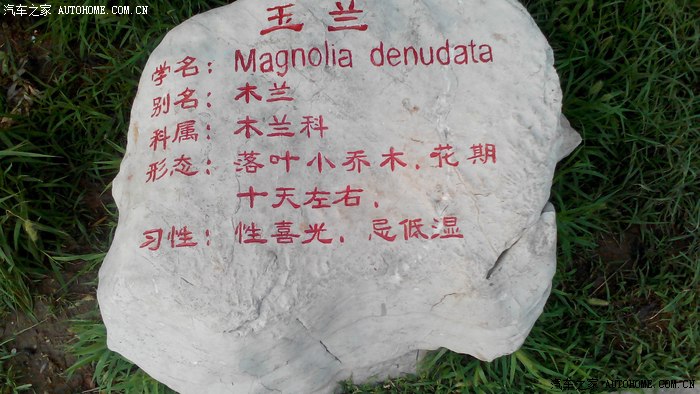 汽车之家 AUTOHOME.COM.CN
玉兰
学名：Magnolia denudata
别名：木兰
科属：木兰科
形态：落叶小乔木，花期
十天左右，
习性：性喜光，忌低湿
汽车之家 AUTOHOME.COM.CN